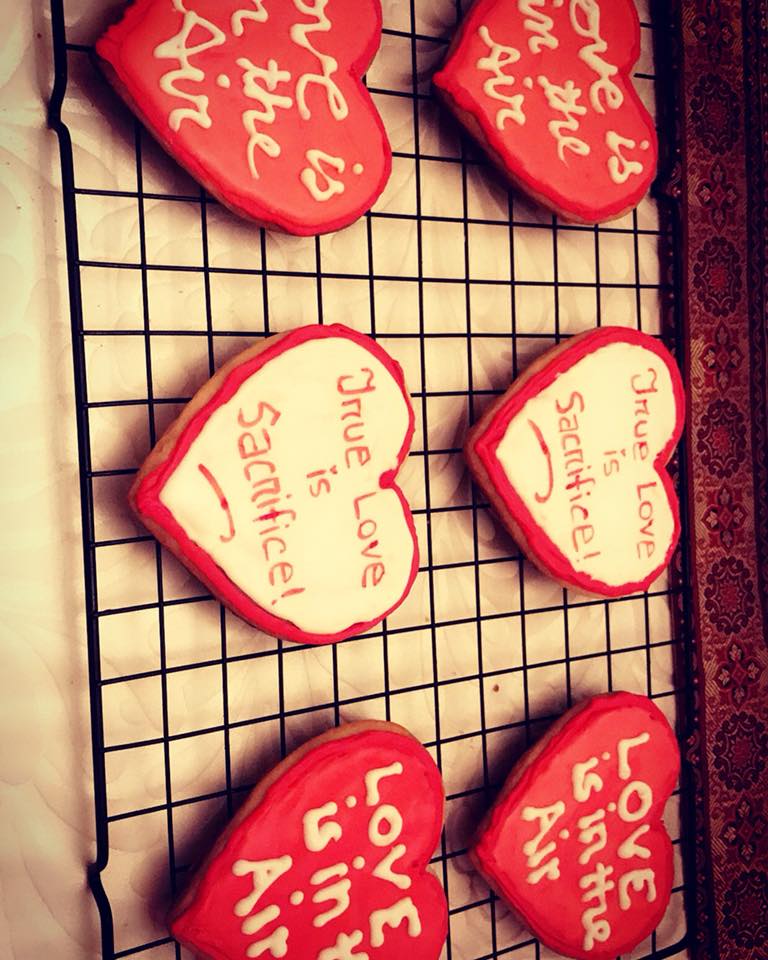 Love is
in the
Air
True Love
is
Sacrifice!
LOVE
is in the
Air
ove is
n the
Air
True Love
is
Sacrifice!
LOVE
is in t
Air